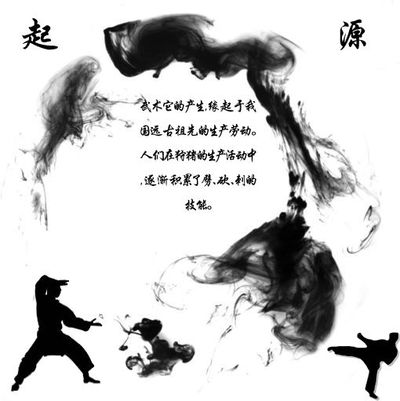 起 源
武术它的产生,缘起于我
国远古祖先的生产劳动。
人们在狩猪的生产活动中
,逐渐积累了劈、砍、刺的
技能。